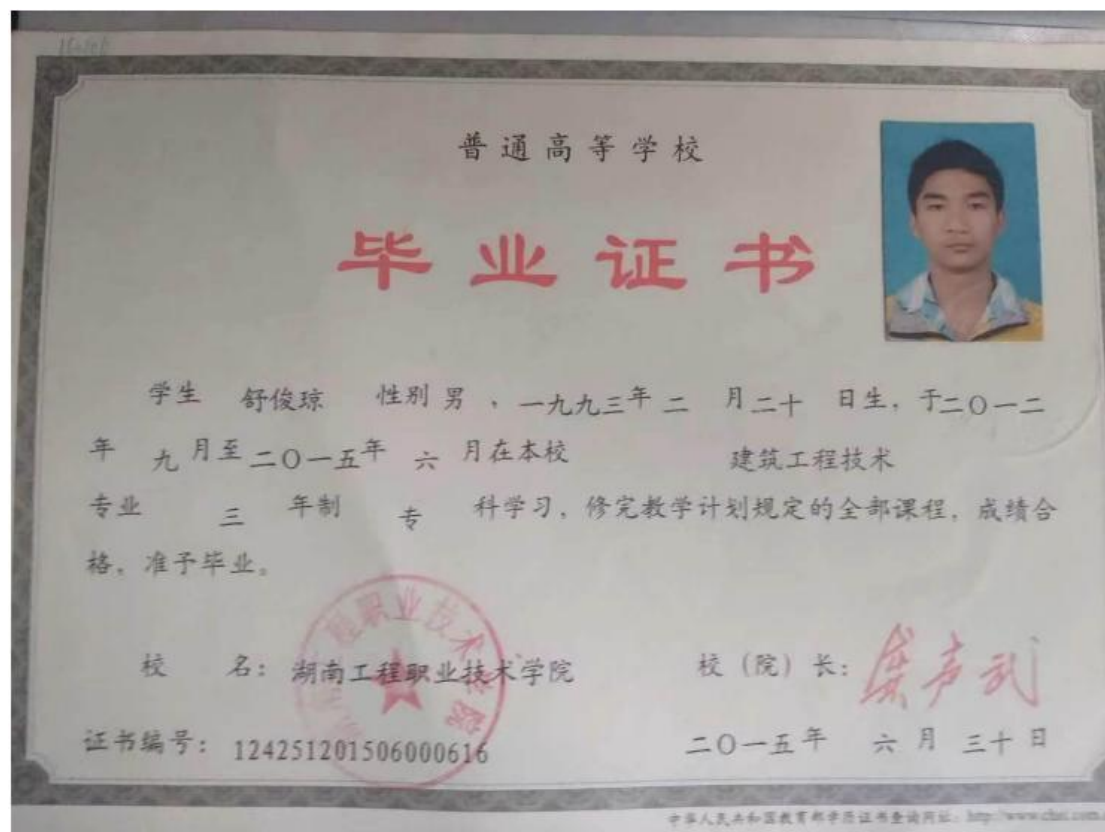 普通高等学校
毕业证书
学生 舒俊琼 性别 男 ，一九九三年 二 月二十 日生，于二〇一二
年 九 月至二〇一五年 六 月在本校 建筑工程技术
专业 三 年制 专 科学习，修完教学计划规定的全部课程，成绩合
格，准予毕业。
校 名：湖南工程职业技术学院 校（院）长：
证书编号：124251201506000616 二〇一五年 六 月 三十 日
中华人民共和国教育部学历证书查询网址：http://www.chsi.com.